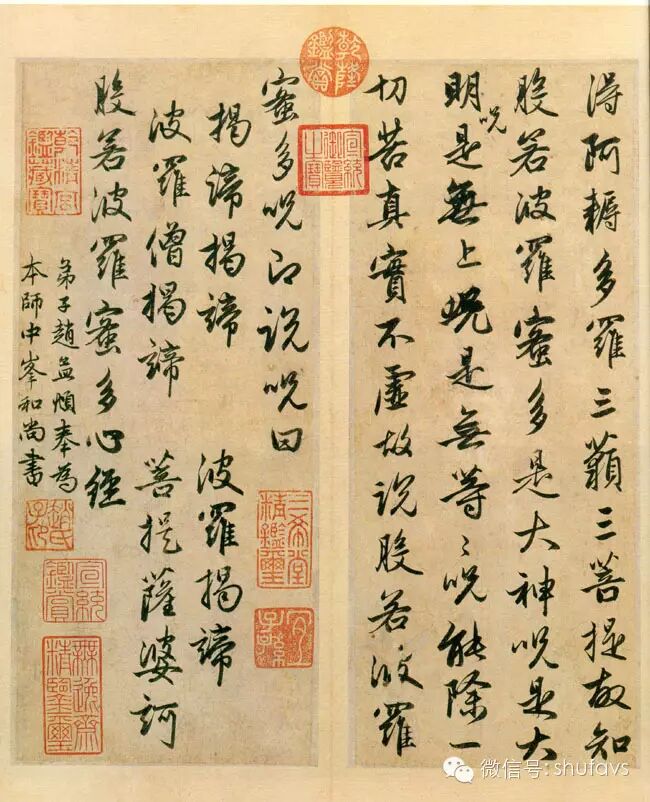 得阿耨多羅三藐三菩提故知
般若波羅蜜多是大神咒是大
明咒是無上咒是無等〻咒能除一
切苦真實不虛故說般若波羅
蜜多咒即說咒曰
揭諦揭諦 波羅揭諦
波羅僧揭諦 菩提薩婆訶
般若波羅蜜多心經
弟子趙孟頫奉為
本師中峯和尚書
乾隆鑑賞
宣統御覽之寶
三希堂精鑑璽
宜子孫
乾清宮鑑藏寶
趙氏子昂
宣統鑑賞
無逸齋精鑑璽
微信号: shufavs